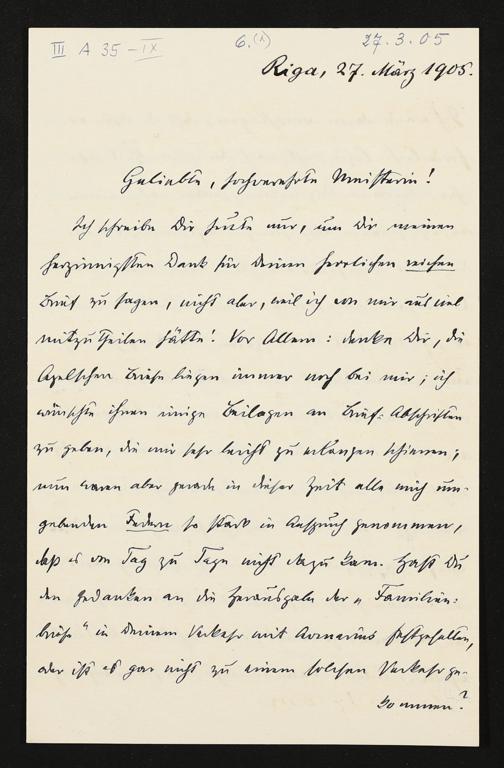 III A 35 - IX 6. (1) 27.3.05
Riga, 27. März 1905.
Geliebte, hochverehrte Meisterin!
Ich schreibe Dir heute nur, um Dir meinen
herzinnigsten Dank für Deinen herrlichen reichen
Brief zu sagen, nicht aber, weil ich von mir aus viel
mitzutheilen hätte! Vor Allem: denke Dir, die
Apelschen Briefe liegen immer noch bei mir; ich
wünschte ihnen einige Beilagen an Brief-Abschriften
zu geben, die mir sehr leicht zu erlangen schienen;
nun waren aber gerade in dieser Zeit alle mich um-
gebenden Federn so stark in Anspruch genommen,
daß es von Tag zu Tage nicht dazu kam. Hast Du
den Gedanken an die Herausgabe der „Familien-
briefe" in Deinem Verkehr mit Avenarius festgehalten,
oder ist es gar nicht zu einem solchen Verkehr ge-
kommen?